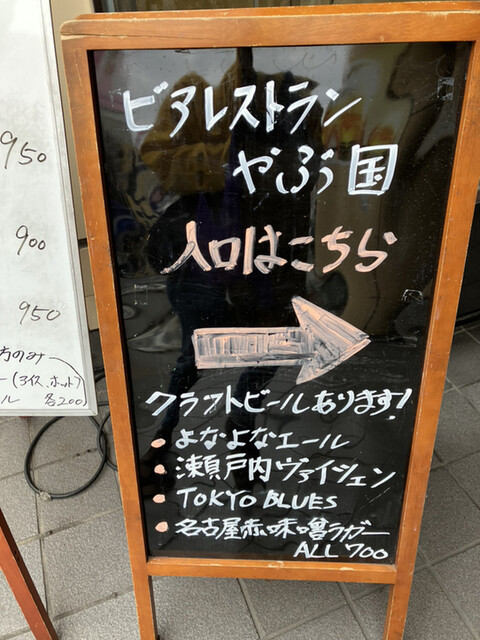 950
900
950
(アイス、ホット)
ル 各200
ビアレストラン
やぶ国
入口はこちら
クラフトビールあります!
・よなよなエール
・瀬戸内ヴァイツェン
・TOKYO BLUES
・名古屋赤味噌ラガー
ALL 700